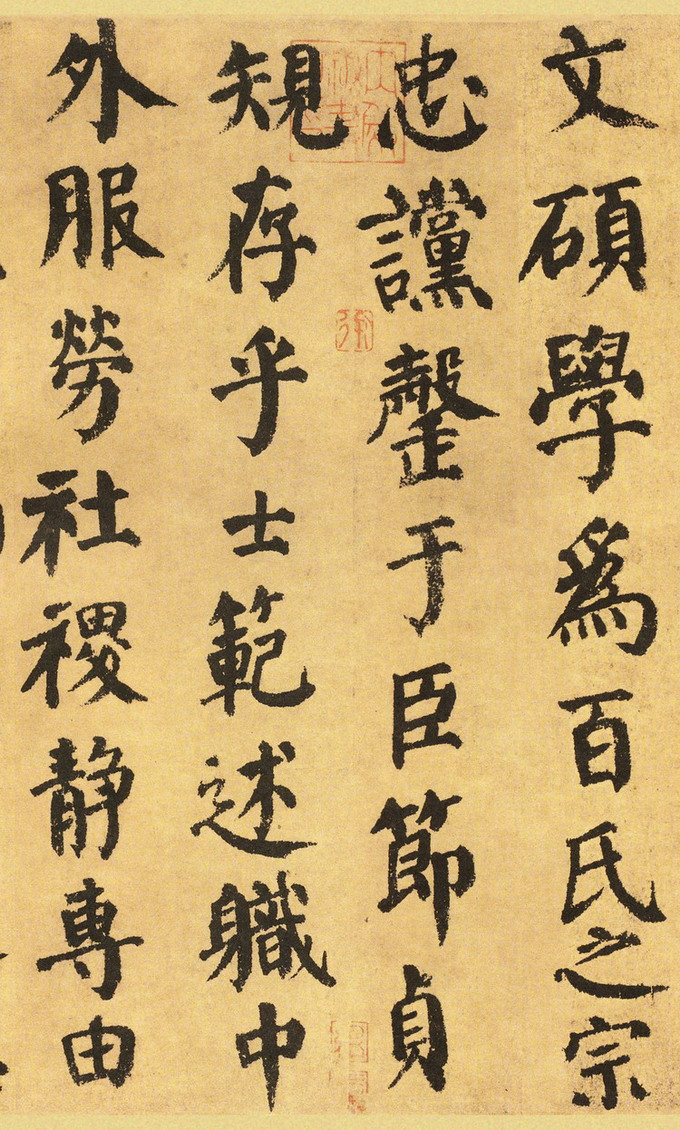 文碩學爲百氏之宗
忠讜罄于臣節貞
規存乎士範述軄中
外服勞社禝静專由